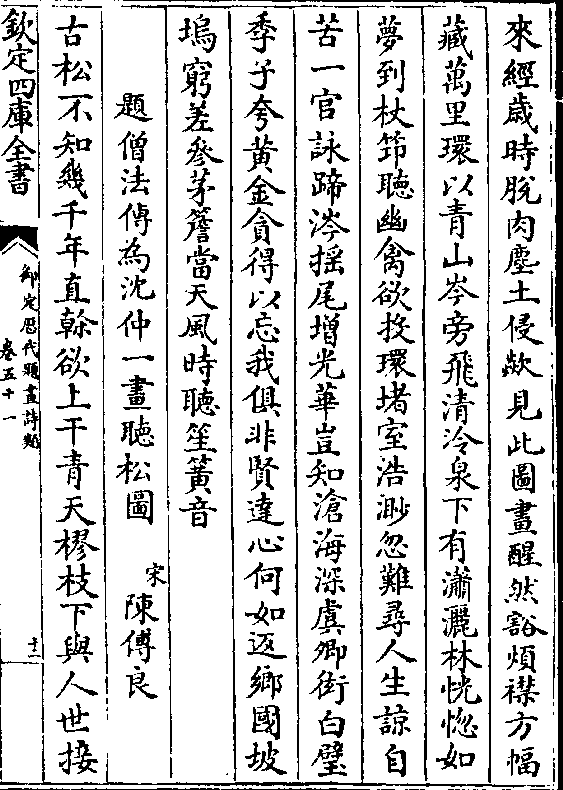 來經歳時脫肉塵土侵歘見此圖畫醒然豁煩襟方幅
藏萬里環以青山岑旁飛清泠泉下有瀟灑林恍惚如
夢到杖笻聽幽禽欲投環堵室浩渺忽難尋人生諒自
苦一官詠蹄涔揺尾增光華豈知滄海深虞卿衒白璧
季子夸黄金貪得以忘我俱非賢達心何如返鄉國坡
塢窮差參茅簷當天風時聽笙簧音
題僧法傳為沈仲一畫聽松圖 宋 陳傅良
古松不知幾千年直榦欲上干青天樛枝下與人世接
欽定四庫全書
御定歴代題畫詩類
卷五十一
十二